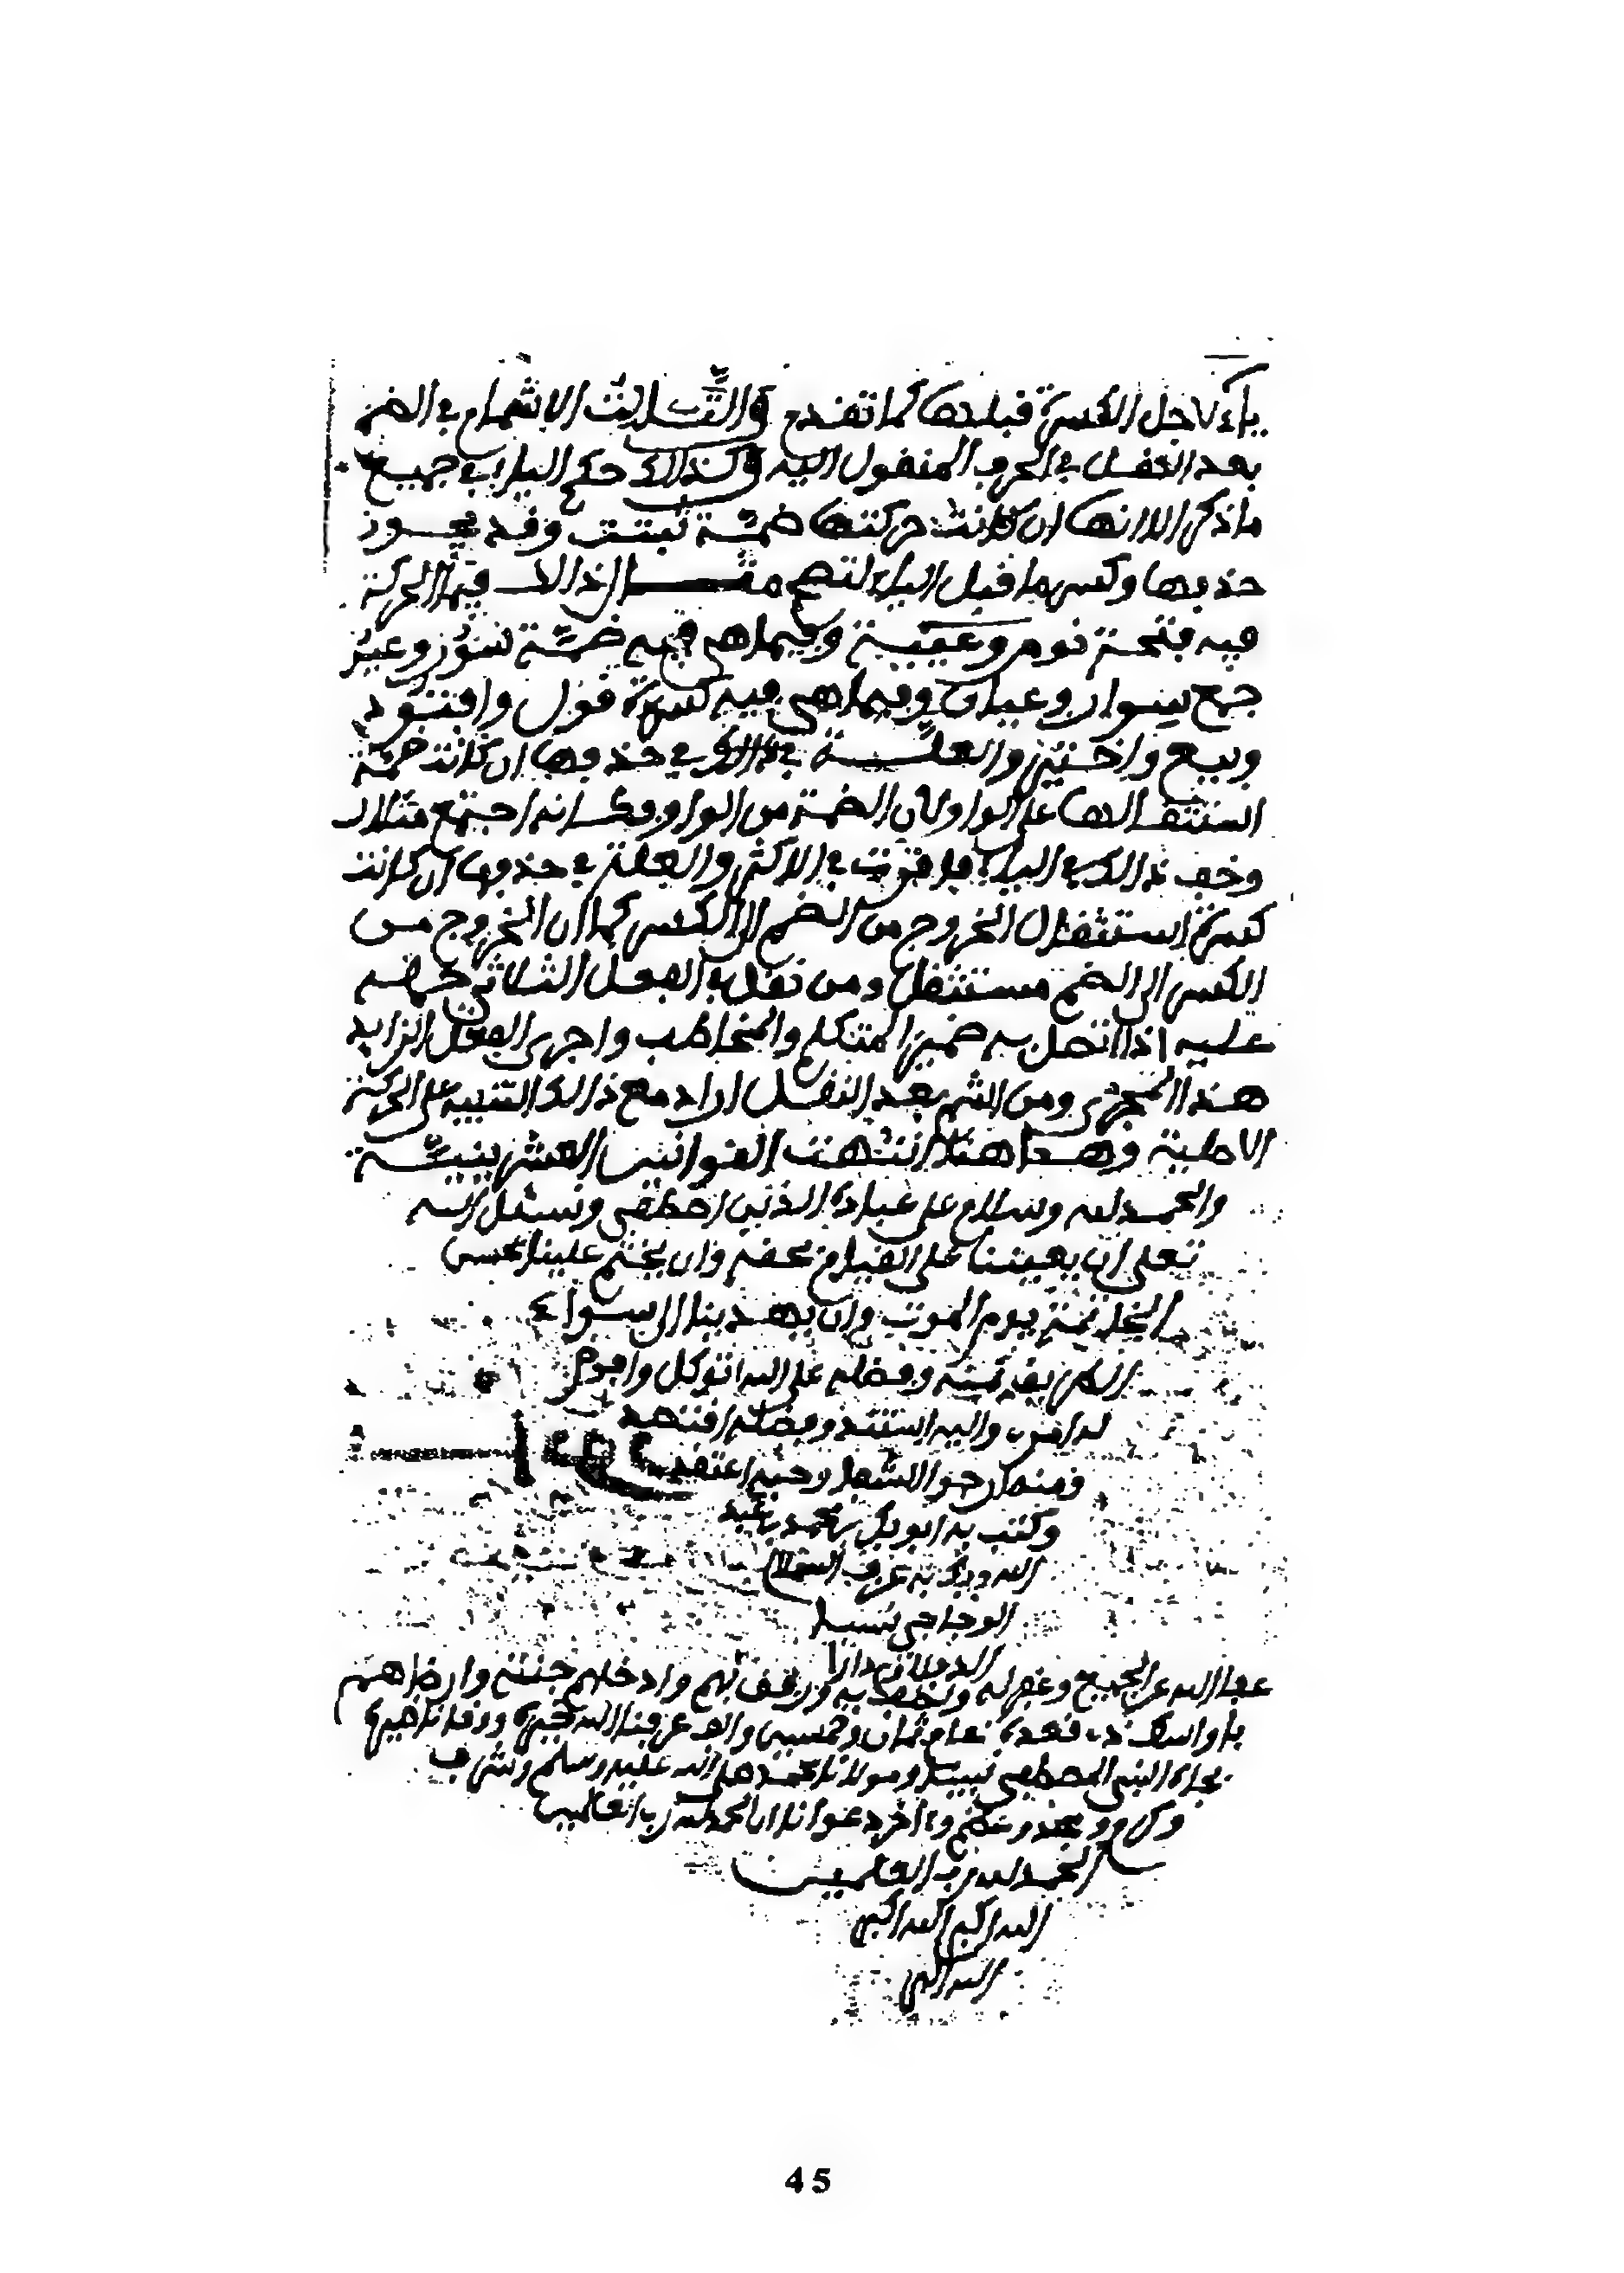 ياء لاجل الكسرة قبلها كما تقدم والثالث الاشمام في الضم
بعد النقل في الحرف المنقول اليه وكذالك حكم الياء في جميع
ما ذكر الا انها ان كانت حركتها ضمة ثبتت وقد يجوز
حذفها وكسر ما قبل الياء لتصح مثال ذالك فيما الحركة
فيه فتحة نوم وغيبة وفيما هي فيه ضمة سور وعين
جمع سوار وعيان وفيما هي فيه كسرة قول وانقود
وبيع واختير والعلة في ذالك في حذفها ان كانت ضمة
استثقالها على الواو لان الضمة من الواو فكانه اجتمع مثلان
وخف ذالك في الياء فثبتت في الاكثر والعلة في حذفها ان كانت
كسرة استثقال الخروج من الضم الى الكسر كما ان الخروج من
الكسر الى الضم مستثقل ومن نقل في الفعل الثلاثي خصه
عليه اذا اتصل به ضمير المتكلم والمخاطب واجرى الفعل الزايد
هذا المجرى ومن اشم بعد النقل اراد مع ذالك التنبيه على الحركة
الاصلية وها هنا انتهت القوانين العشرينية
والحمد لله وسلام على عباده الذين اصطفى ونسئل الله
تعلى ان يعيننا على القيام بحقه وان يختم علينا بحسن
الخاتمة يوم الموت وان يهدينا الى سواء
وفضله على الله اتوكل وافوض
واليه استند وبفضله
ومنه ارجو الشفا اعتقد
وكتب به ابو بكر بن محمد بن عبد
الله
عفا الله عن الجميع وغفر له وادخلهم جنته وارضاهم
عام ثمان وخمسين والف عرفنا الله خيره ووقانا ضيره
بجاه النبي المصطفى نبينا ومولانا محمد صلى الله عليه وسلم وشرف
وكرم ومجد وعظم واخر دعوانا ان الحمد لله رب العالمين
الحمد لله رب العلمين
الله اكبر الله اكبر
الله اكبر
45